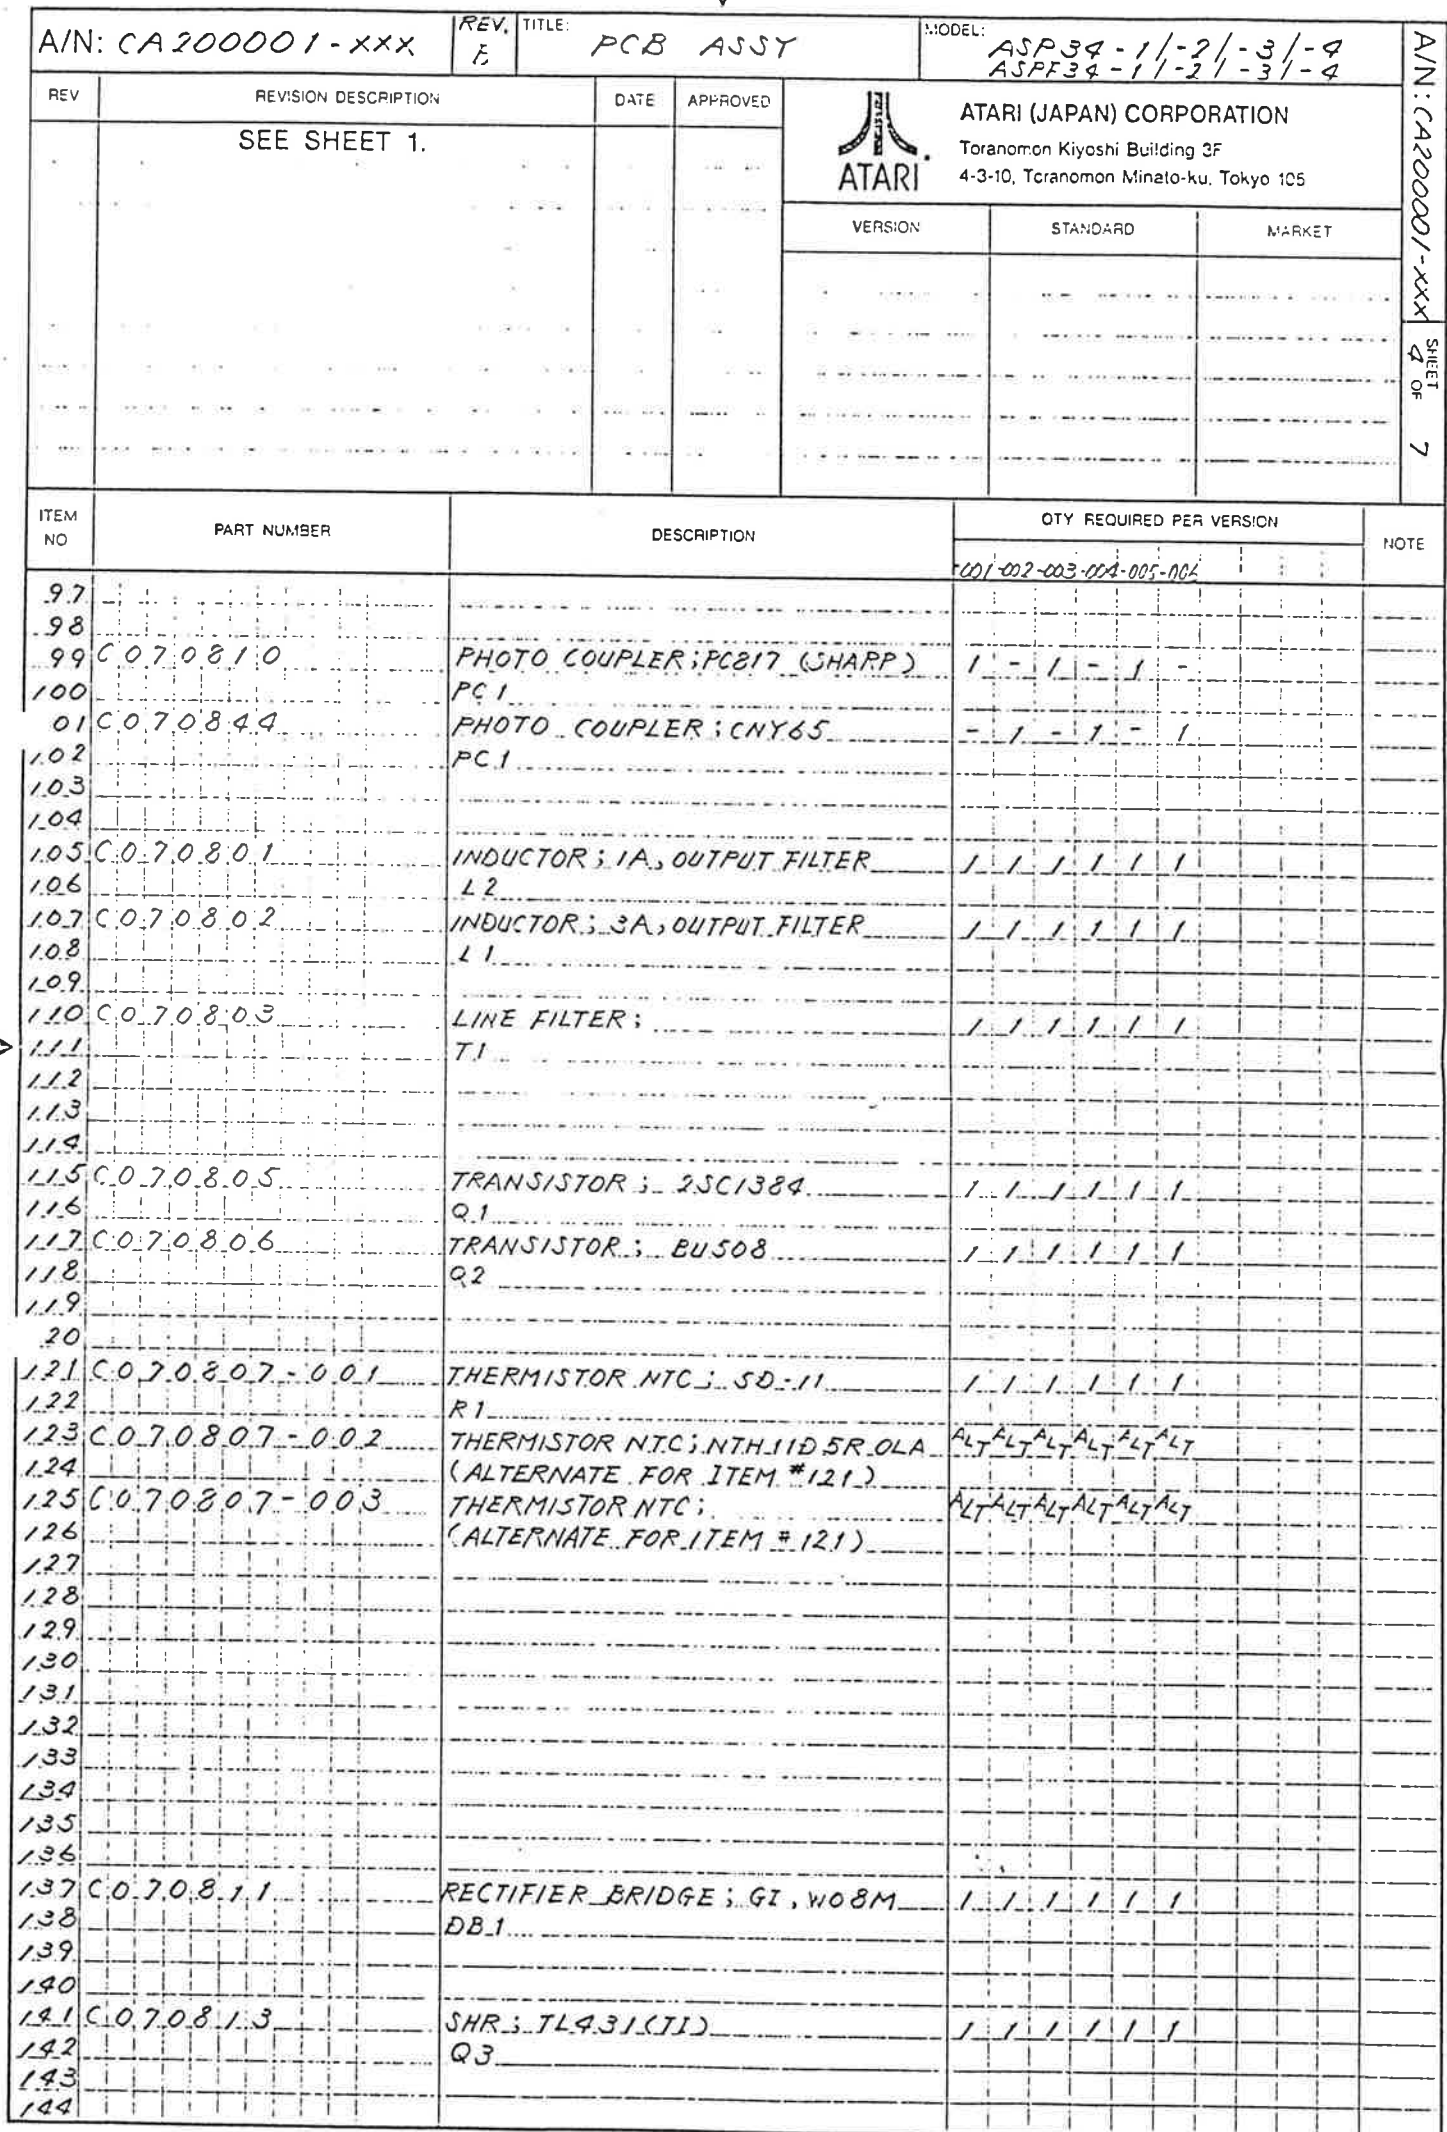 A/N: CA200001-XXX
REV. E
TITLE: PCB ASSY
MODEL: ASP34-1/-2/-3/-4
ASPF34-1/-2/-3/-4
REV REVISION DESCRIPTION DATE APPROVED
SEE SHEET 1.
ATARI
ATARI (JAPAN) CORPORATION
Toranomon Kiyoshi Building 3F
4-3-10, Toranomon Minato-ku, Tokyo 105
VERSION STANDARD MARKET
A/N: CA200001-XXX SHEET 4 OF 7
ITEM NO PART NUMBER DESCRIPTION QTY REQUIRED PER VERSION NOTE
-001-002-003-004-005-006
97
98
99 C070810 PHOTO COUPLER; PC817 (SHARP) 1 - 1 - 1 -
100 PC1
01 C070844 PHOTO COUPLER; CNY65 - 1 - 1 - 1
102 PC1
103
104
105 C070801 INDUCTOR; 1A, OUTPUT FILTER 1 1 1 1 1 1
106 L2
107 C070802 INDUCTOR; 3A, OUTPUT FILTER 1 1 1 1 1 1
108 L1
109
110 C070803 LINE FILTER; 1 1 1 1 1 1
111 T1
112
113
114
115 C070805 TRANSISTOR; 2SC1384 1 1 1 1 1 1
116 Q1
117 C070806 TRANSISTOR; BU508 1 1 1 1 1 1
118 Q2
119
20
121 C070807-001 THERMISTOR NTC; SD-11 1 1 1 1 1 1
122 R1
123 C070807-002 THERMISTOR NTC; NTH11D5R0LA ALT ALT ALT ALT ALT ALT
124 (ALTERNATE FOR ITEM #121)
125 C070807-003 THERMISTOR NTC; ALT ALT ALT ALT ALT ALT
126 (ALTERNATE FOR ITEM #121)
127
128
129
130
131
132
133
134
135
136
137 C070811 RECTIFIER BRIDGE; GI, W08M 1 1 1 1 1 1
138 DB1
139
140
141 C070813 SHR; TL431(TI) 1 1 1 1 1 1
142 Q3
143
144